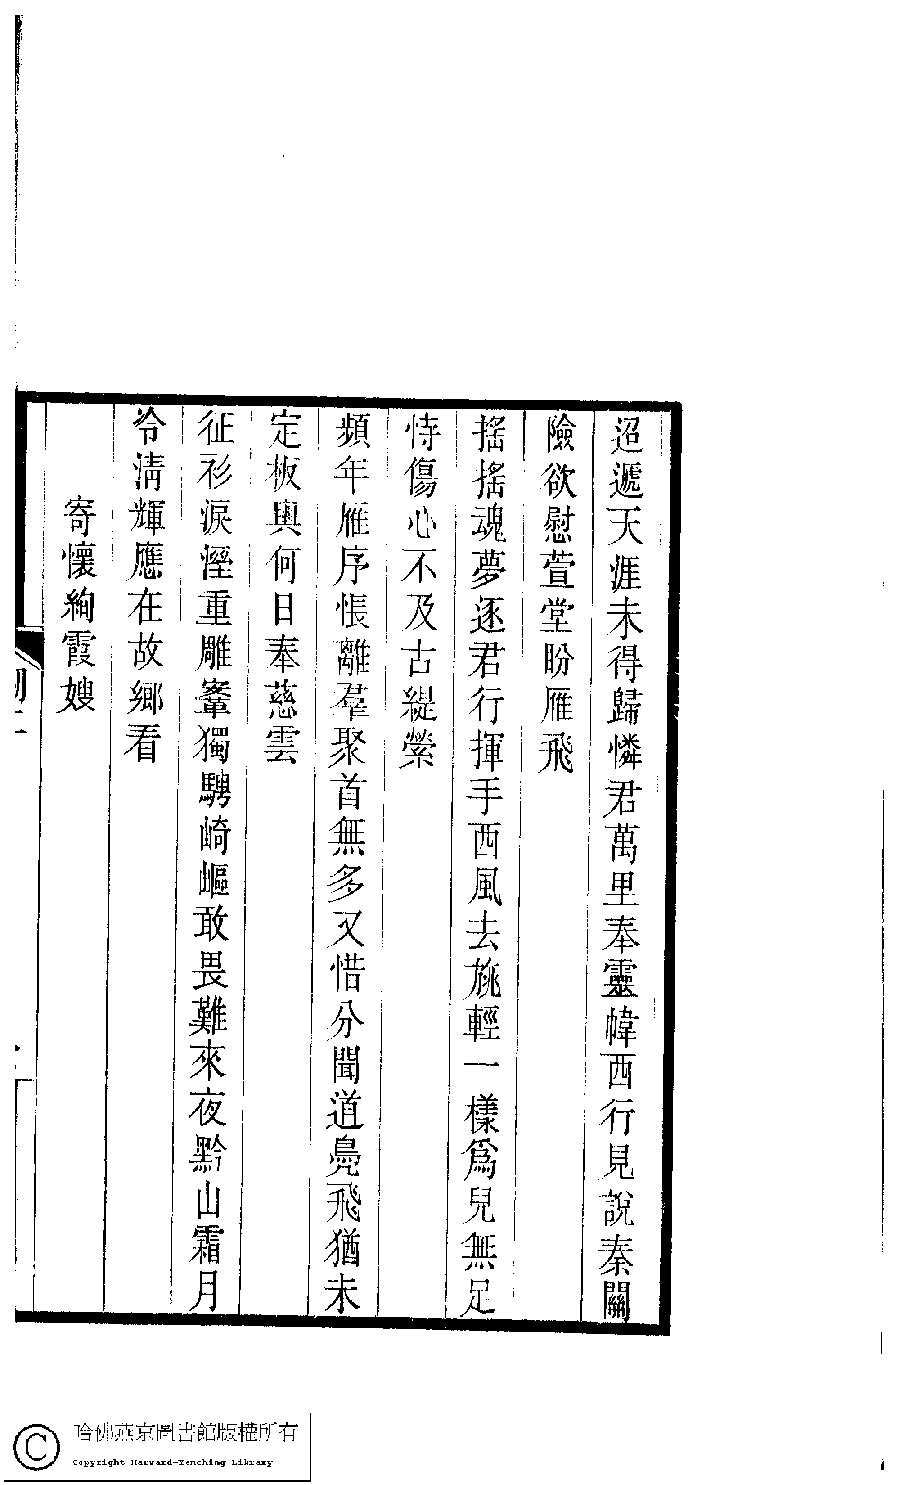 迢遞天涯未得歸憐君萬里奉靈幃西行見說秦關
險欲慰萱堂盼雁飛
搖搖魂夢逐君行揮手西風去旐輕一樣爲兒無足
恃傷心不及古緹縈
頻年雁序悵離羣聚首無多又惜分聞道鳧飛猶未
定板輿何日奉慈雲
征衫淚溼重雕鞌獨騁崎嶇敢畏難來夜黔山霜月
令淸輝應在故鄉看
寄懷絢霞嫂
哈佛燕京圖書館版權所有
Copyright Harvard-Yenching Library